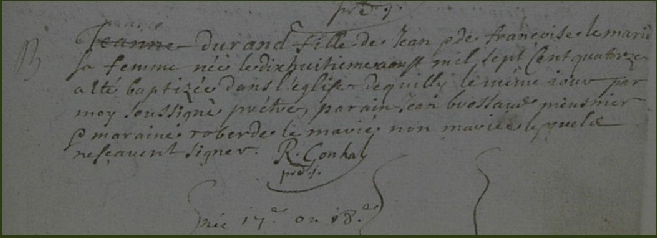 ptre
B
Jeanne durand fille de Jean & de françoise le marié
sa femme née le dixhuitieme aoust mil sept Cent quatorze
a été baptizée dans l'église dequilly le même jour par
moy soussigné prêtre, parain Jean brossaud meusnier
& maraine roberde le marié non mariée lequels
ne sçavent signer. R. Gonhal
ptre
17e ou 18e